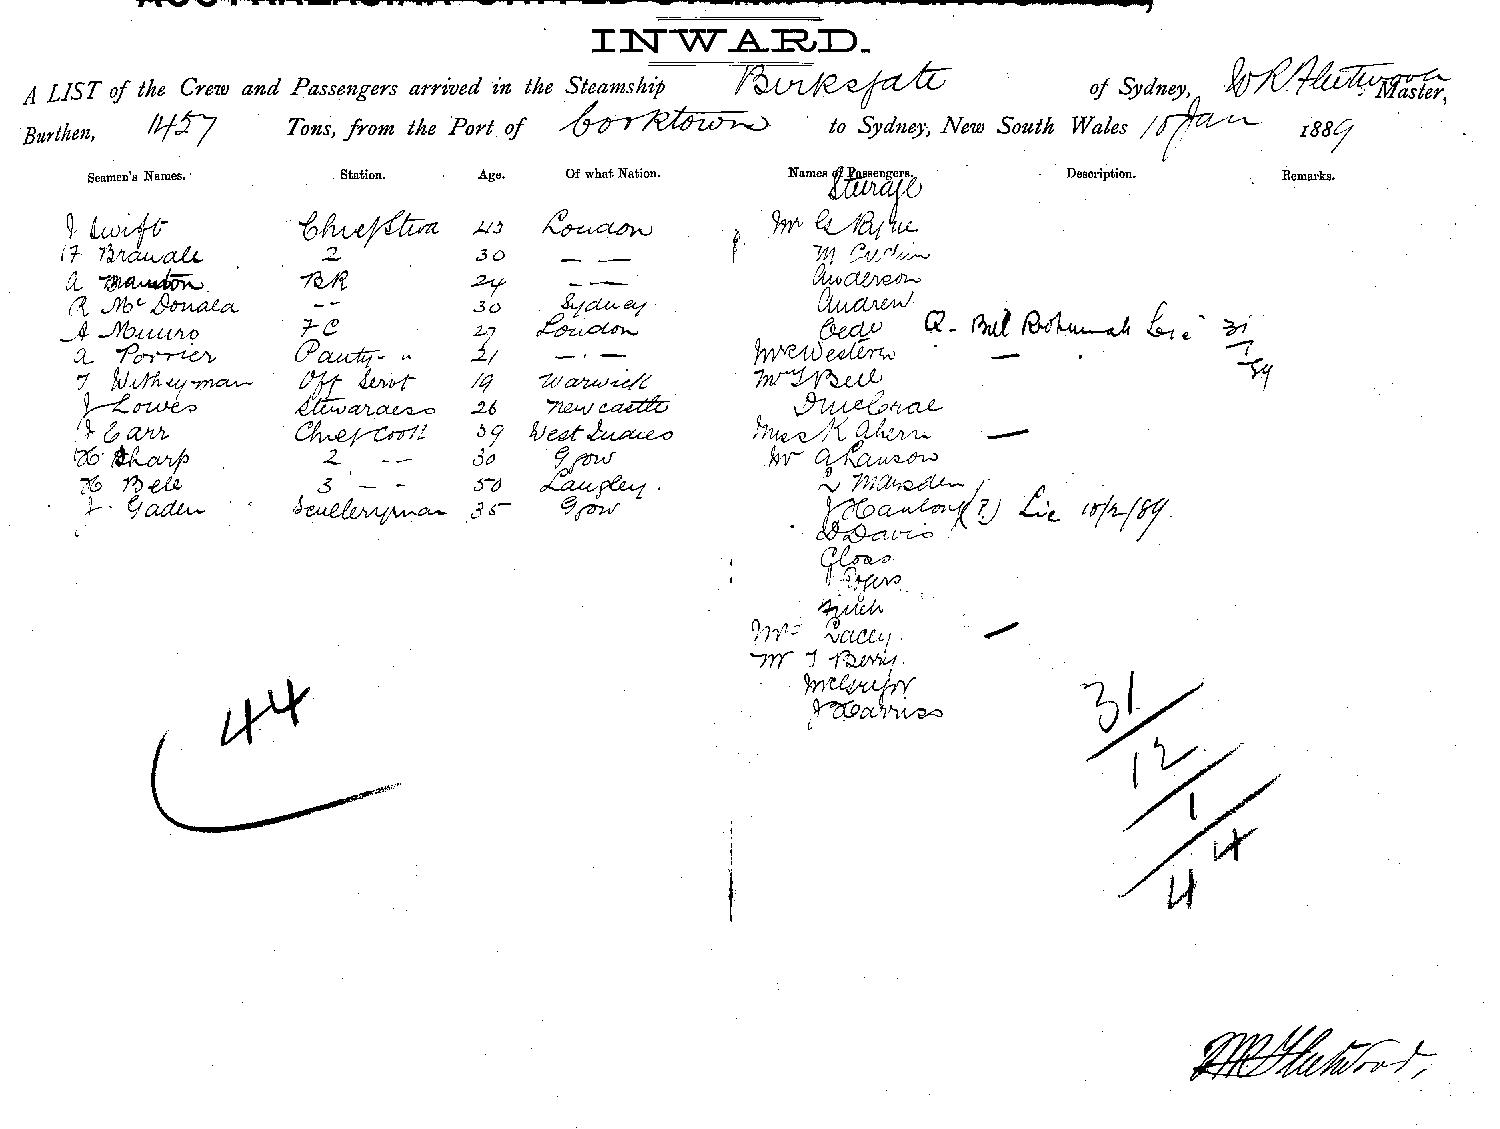 INWARD.
A LIST of the Crew and Passengers arrived in the Steamship Birksgate of Sydney, W R Fleetwood Master,
Burthen, 1457 Tons, from the Port of Cooktown to Sydney, New South Wales 10 Jan 1889
Seamen's Names. Station. Age. Of what Nation. Names of Passengers. Description. Remarks.
Steerage
J Swift Chief Stwd 43 London Mr C Payne
2 30 — — M
A BR 24 — — Anderson
R McDonald -- 30 Sydney Andrew
A Munro FC 27 London Q-
A Porrier Pantry- " 21 — · — McWestern —
T Witheyman Off Servt 19 Warwick Mr T Bell
J Lowes Stewardess 26 Newcastle D McCrae
J Carr Chief Cook 39 West Indies Miss K Ahern —
H Sharp 2 -- 30 Ggow Mr A Lawson
H Bell 3 — - 50 Langley. L Marsden
J. Gaden Sculleryman 35 Ggow J Hanlon (?) Lic 10/2/89
D Davis
Gloas
Finch
Mr Lacey. —
Mr J Berry.
McGregor
J Harriss
44
31
12
1
44
W R Fleetwood,